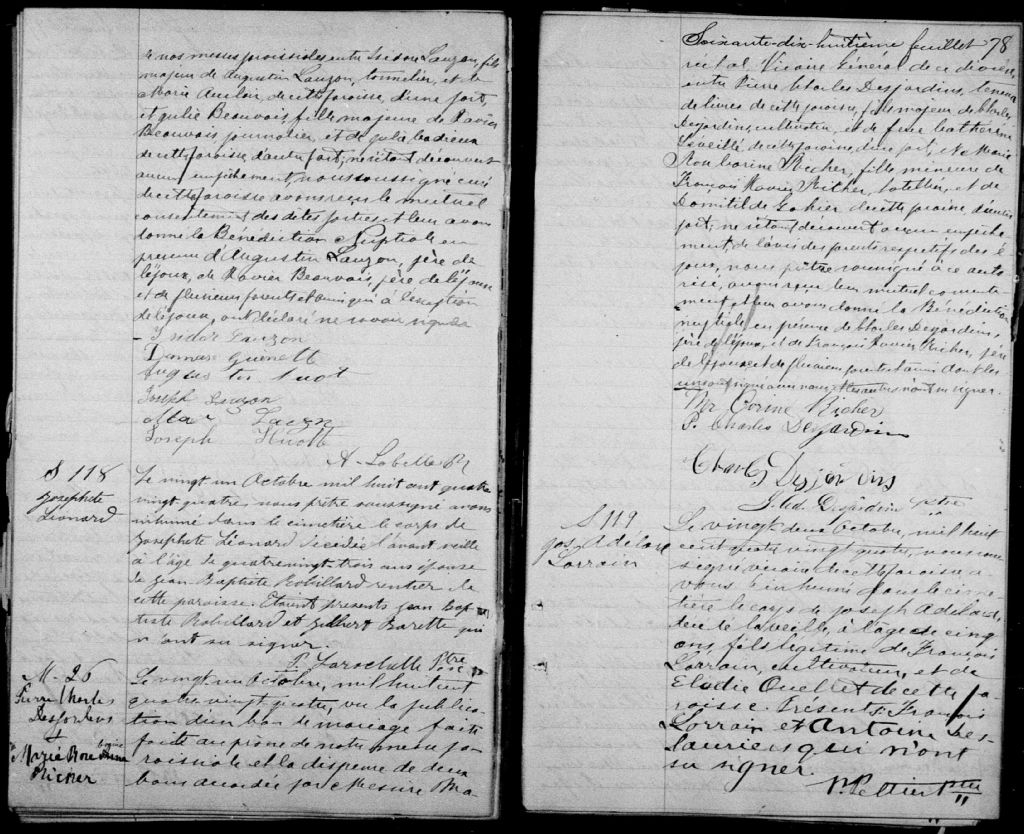 de nos messes paroissiales entre Isidore Lauzon, fils
majeur de Augustin Lauzon, tonnelier, et de
Marie Auclair, de cette paroisse, d'une part,
et Julie Beauvois, fille majeure de Xavier
Beauvois journalier, et de Julie Cadieux
de cette paroisse, d'autre part; ne s'étant découvert
aucun empêchement, nous soussigné curé
de cette paroisse avons reçu le mutuel
consentement des dites parties et leur avons
donné la Bénédiction Nuptiale en
présence d'Augustin Lauzon, père de
l'époux, de Xavier Beauvois, père de l'épouse
et de plusieurs parents et amis qui à l'exception
de l'époux, ont déclaré ne savoir signer
Isidor Lauzon
Damase Guenette
Joseph Lauzon
Joseph Huott
A. Labelle Ptr
S 118
Josephte
Léonard
Le vingt un Octobre mil huit cent quatre
vingt quatre nous prêtre soussigné avons
inhumé dans le cimetière le corps de
Josephte Léonard décédée l'avant veille
à l'âge de quatrevingt trois ans épouse
de Jean Baptiste Robillard rentier de
cette paroisse. Etaient présents Jean Bap
tiste Robillard et Gilbert Barette qui
n'ont su signer.
P. Larochelle Ptre
M- 26
Pierre Charles
Desjardins
+
Marie Rose
Richer
Le vingt un Octobre, mil huit cent
quatre vingt quatre, vu la publica
tion d'un ban de mariage faite
faite au prône de notre messe pa
roissiale et la dispense de deux
bans accordée par Messire Ma
Soixante-dix-huitième feuillet 78
réchal, Vicaire Général de ce diocèse,
entre Pierre Charles Desjardins, teneur
de livres de cette paroisse, fils majeur de Charles
Desjardins, cultivateur, et de feue Catherine
Léveillé, de cette paroisse, d'une part, et Marie
Richer, fille mineure de
François Xavier Richer, hôtelier, et de
Domitilde Gohier de cette paroisse d'autre
part; ne s'étant découvert aucun empêche
ment, de l'avis des parents respectifs des é
poux, nous prêtre soussigné à ce auto
risé, avons reçu leur mutuel consente
ment et leur avons donné la Bénédiction
nuptiale en présence de Charles Desjardins,
père de l'époux, et de François Xavier Richer, père
de l'épouse et de plusieurs parents et amis dont les
uns ont signé avec nous. Les autres n'ont su signer.
Mr Corine Richer
P. Charles Desjardins
Charles Desjardins
Desjardins ptre
S 119
Jos. Adelard
Lorrain
Le vingt deux Octobre, mil huit
cent quatre vingt quatre, nous sous
signé vicaire de cette paroisse a
vons inhumé dans le cime
tière le corps de Joseph Adelard,
décédé la veille, à l'âge de cinq
ans, fils légitime de François
Lorrain, cultivateur, et de
Elodie Ouellet de cette pa
roisse. Présents: François
Lorrain et Antoine Des
lauriers qui n'ont
su signer.
P. Peltier Ptre